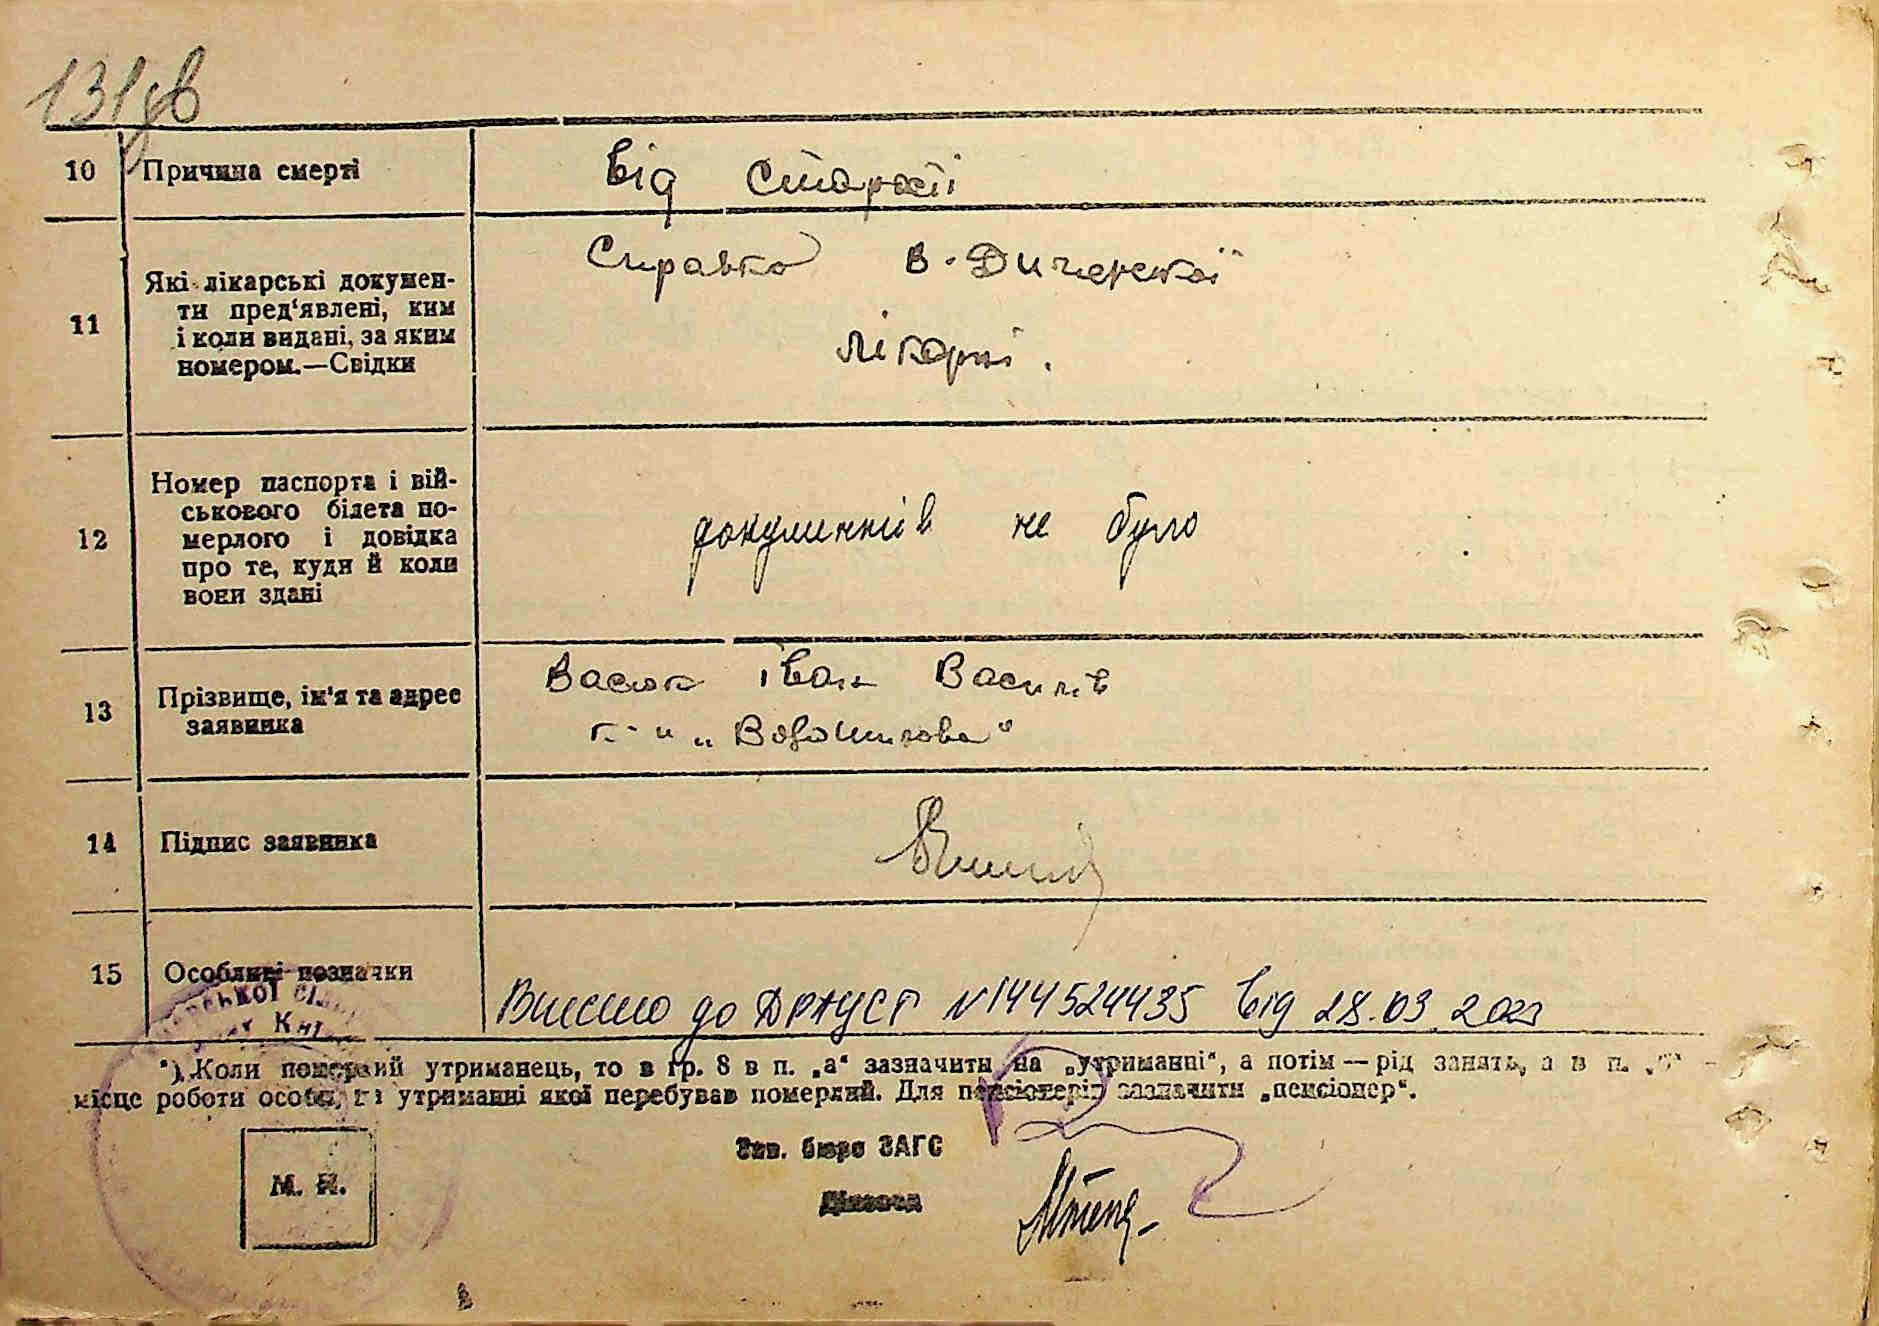 131 зв
10 Причина смерті
Від старості
11 Які лікарські докумен-
ти пред'явлені, ким
і коли видані, за яким
номером.—Свідки
Справка В-Диченської
лікарні.
12 Номер паспорта і вій-
ськового білета по-
мерлого і довідка
про те, куди й коли
вони здані
документів не було
13 Прізвище, ім'я та адрес
заявника
Васюк Іван Василів
к-п „Ворошилова"
14 Підпис заявника
15 Особливі позначки
Внесено до ДРАЦСГ №144524435 від 28.03.2023
*) Коли померлий утриманець, то в гр. 8 в п. „а" зазначити на „утриманні", а потім — рід занять, а в п.
місце роботи особи, на утриманні якої перебував померлий. Для пенсіонерів зазначити „пенсіонер".
Зав. бюро ЗАГС
М. П.
Діловод